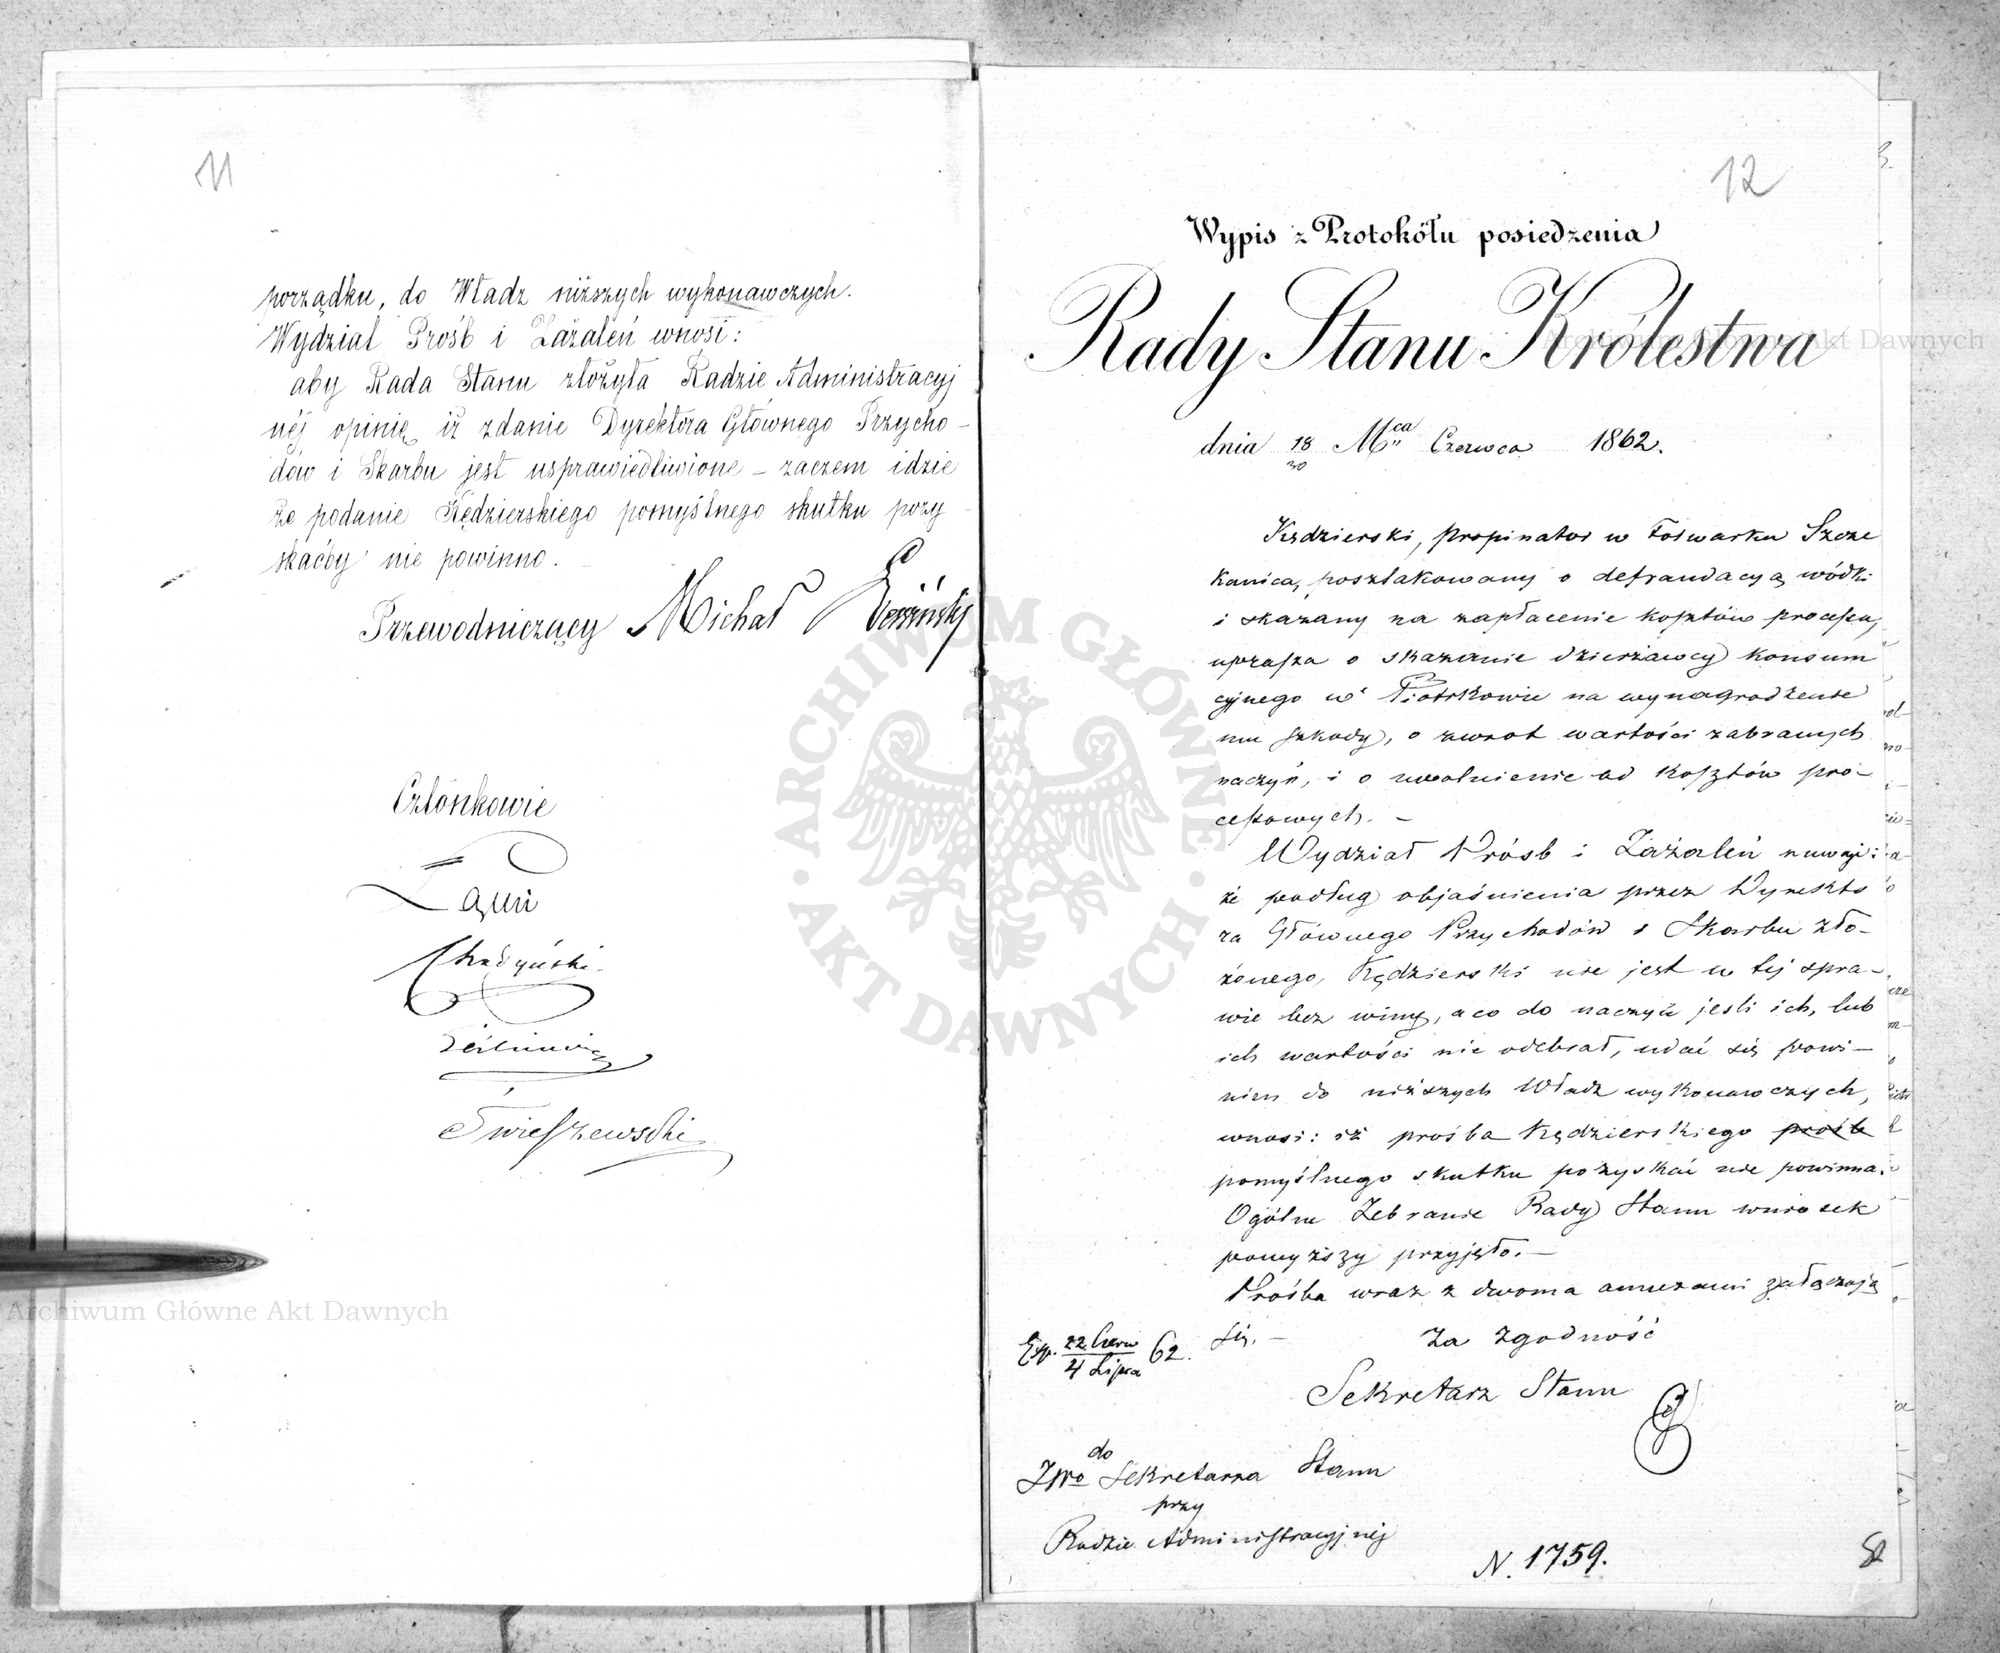 11
porządku, do Władz niższych wykonawczych.
Wydział Próśb i Zażaleń wnosi:
aby Rada Stanu złożyła Radzie Administracyj
nej opinię, iż zdanie Dyrektora Głównego Przycho-
dów i Skarbu jest usprawiedliwione – zaczem idzie
że podanie Kędzierskiego pomyślnego skutku pozy
skaćby nie powinno.
Przewodniczący Michał
Członkowie
Łąski
Chądzyński
Świeszewski
12
Wypis z Protokółu posiedzenia
Rady Stanu Królestwa
dnia 18/30 Mca Czerwca 1862.
Kędzierski, propinator w folwarku Szcze
kanica, poszlakowany o defraudacyą wódki
i skazany na zapłacenie kosztów procesu,
uprasza o skazanie dzierżawcy konsum
cyjnego w Piotrkowie na wynagrodzenie
mu szkody, o zwrot wartości zabranych
naczyń, i o uwolnienie od kosztów pro-
cesowych. –
Wydział Próśb i Zażaleń z uwagi:
że podług objaśnienia przez Dyrekto
ra Głównego Przychodów i Skarbu zło-
żonego, Kędzierski nie jest w tej spra-
wie bez winy, a co do naczyń jeśli ich, lub
ich wartości nie odebrał, udać się powi-
nien do niższych Władz wykonawczych,
wnosi: iż prośba Kędzierskiego prośb
pomyślnego skutku pozyskać nie powinna.
Ogólne Zebranie Rady Stanu wniosek
powyższy przyjęło. –
Prośba wraz z dwoma annexami załączają
się. –
Za zgodność
Exp. 22 Czerw/4 Lipca 62.
Sekretarz Stanu
do
JWo Sekretarza Stanu
przy
Radzie Administracyjnej
N. 1759.
Archiwum Główne Akt Dawnych
Archiwum Główne Akt Dawnych
ARCHIWUM GŁÓWNE · AKT DAWNYCH ·